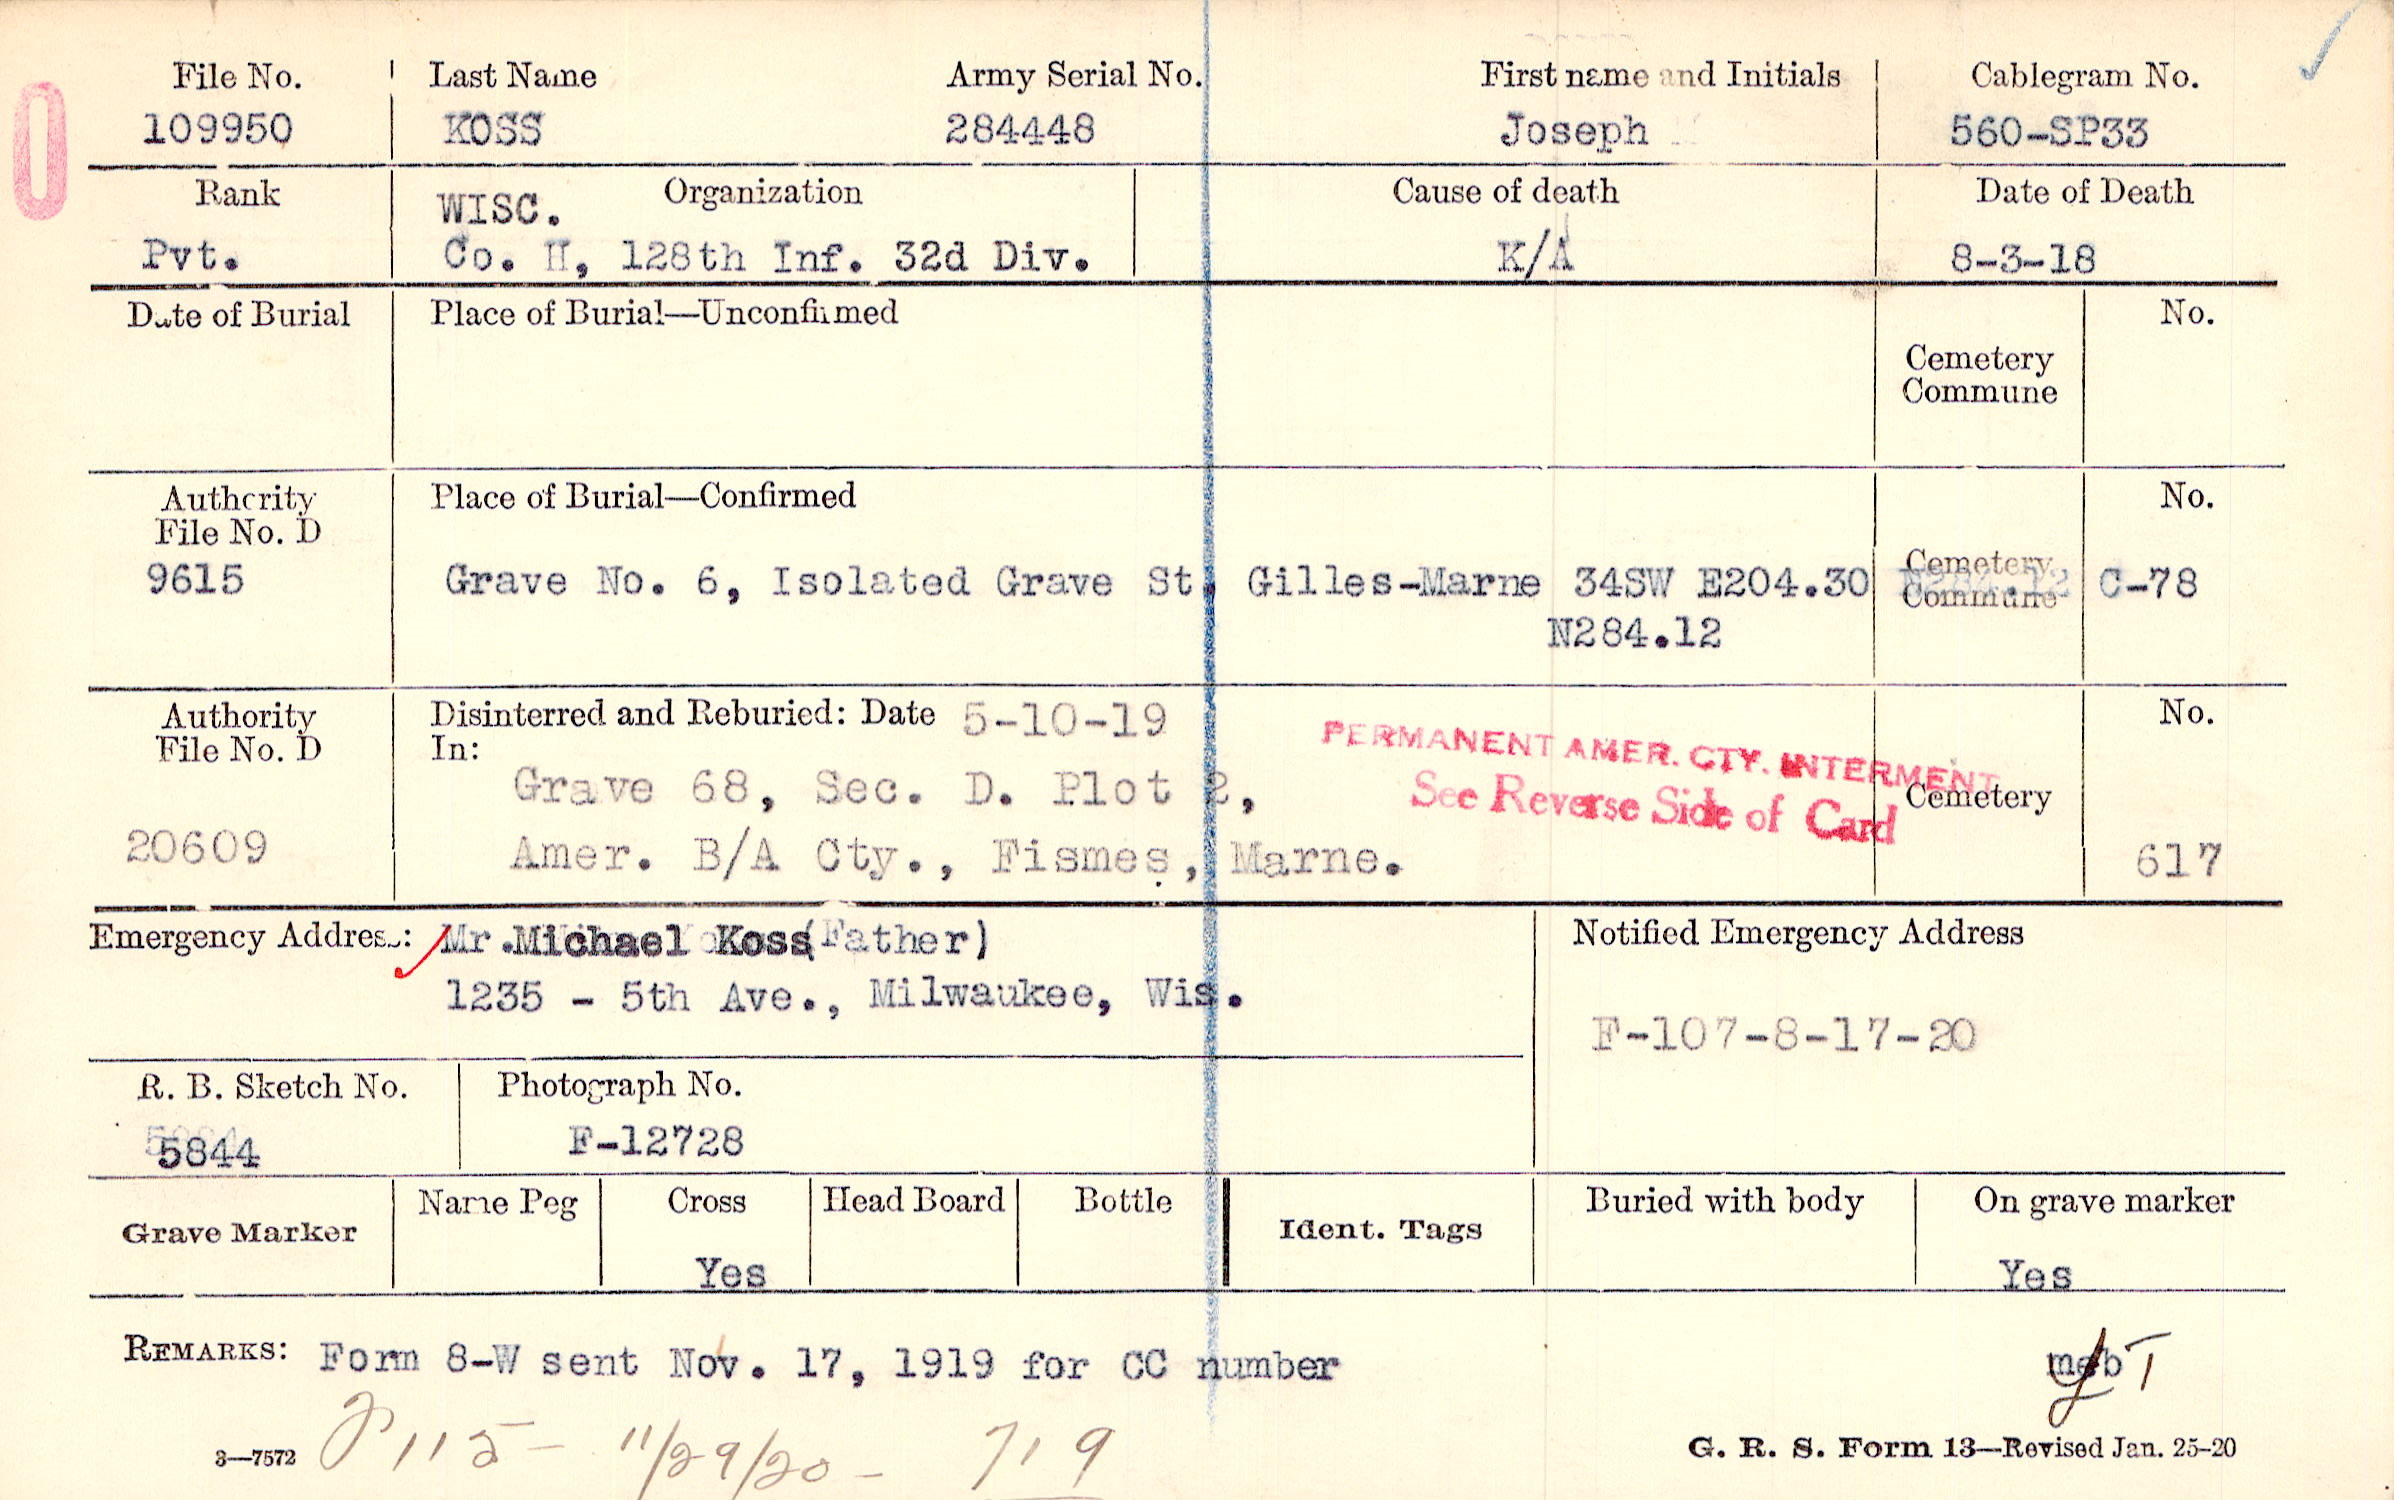 File No. Last Name Army Serial No. First name and Initials Cablegram No.
109950 KOSS 284448 Joseph 560-SP33
Rank Organization Cause of death Date of Death
WISC.
Pvt. Co. H, 128th Inf. 32d Div. K/A 8-3-18
Date of Burial Place of Burial—Unconfirmed No.
Cemetery
Commune
Authority Place of Burial—Confirmed No.
File No. D
Cemetery
9615 Grave No. 6, Isolated Grave St. Gilles-Marne 34SW E204.30 N284.12 C-78
Commune
N284.12
Authority Disinterred and Reburied: Date 5-10-19 No.
File No. D In:
PERMANENT AMER. CTY. INTERMENT
See Reverse Side of Card
Grave 68, Sec. D. Plot 2, Cemetery
20609 Amer. B/A Cty., Fismes, Marne. 617
Emergency Address: Mr. Michael Koss (Father) Notified Emergency Address
1235 - 5th Ave., Milwaukee, Wis.
F-107-8-17-20
R. B. Sketch No. Photograph No.
5844 F-12728
Grave Marker Name Peg Cross Head Board Bottle Ident. Tags Buried with body On grave marker
Yes Yes
REMARKS: Form 8-W sent Nov. 17, 1919 for CC number
3—7572 11/29/20 - 719
G. R. S. Form 13—Revised Jan. 25-20